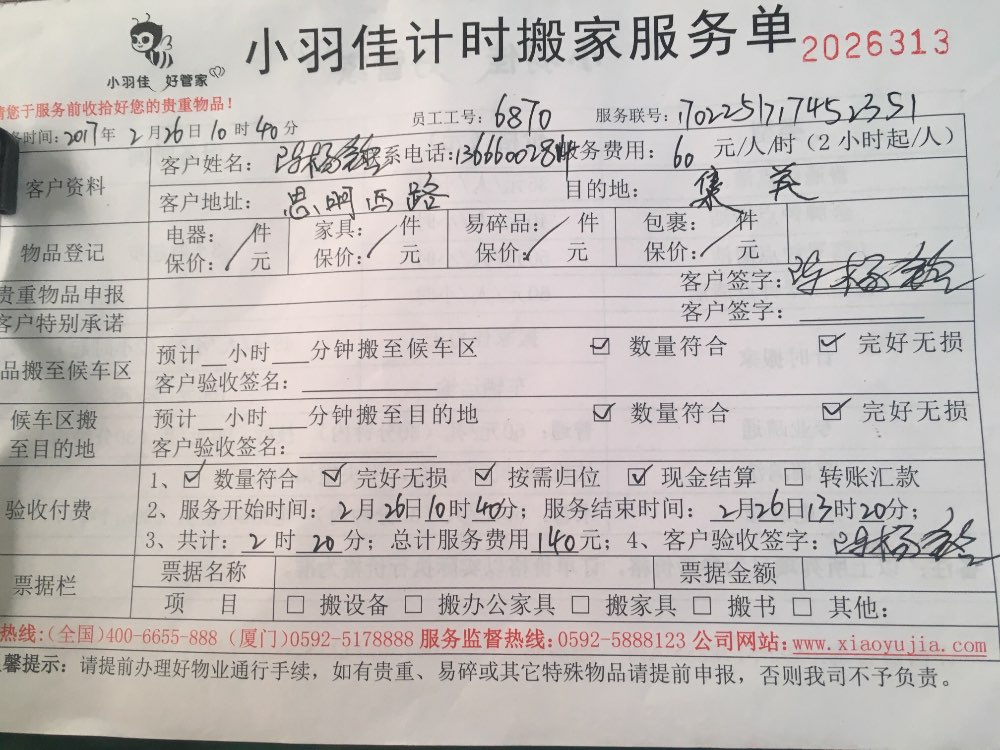 小羽佳 好管家
小羽佳计时搬家服务单 2026313
请您于服务前收拾好您的贵重物品！
务时间：2017年2月26日10时40分 员工工号：6870 服务联号：1702251717452351
客户资料 客户姓名： 系电话：136660028 务费用：60元/人/时（2小时起/人）
客户地址：思明西路 目的地：集美
物品登记 电器： 件 家具： 件 易碎品： 件 包裹： 件
保价： 元 保价： 元 保价： 元 保价： 元
贵重物品申报 客户签字：
客户特别承诺 客户签字：
品搬至候车区 预计__小时___分钟搬至候车区 ☑ 数量符合 ☑ 完好无损
客户验收签名：
候车区搬至目的地 预计__小时___分钟搬至目的地 ☑ 数量符合 ☑ 完好无损
客户验收签名：
验收付费 1、☑ 数量符合 ☑ 完好无损 ☑ 按需归位 ☑ 现金结算 □ 转账汇款
2、服务开始时间：2月26日10时40分；服务结束时间：2月26日13时20分；
3、共计：2时20分；总计服务费用140元；4、客户验收签字：
票据栏 票据名称 票据金额
项 目 □ 搬设备 □ 搬办公家具 □ 搬家具 □ 搬书 □ 其他：
热线：(全国)400-6655-888 (厦门)0592-5178888 服务监督热线：0592-5888123 公司网站：www.xiaoyujia.com
馨提示：请提前办理好物业通行手续，如有贵重、易碎或其它特殊物品请提前申报，否则我司不予负责。